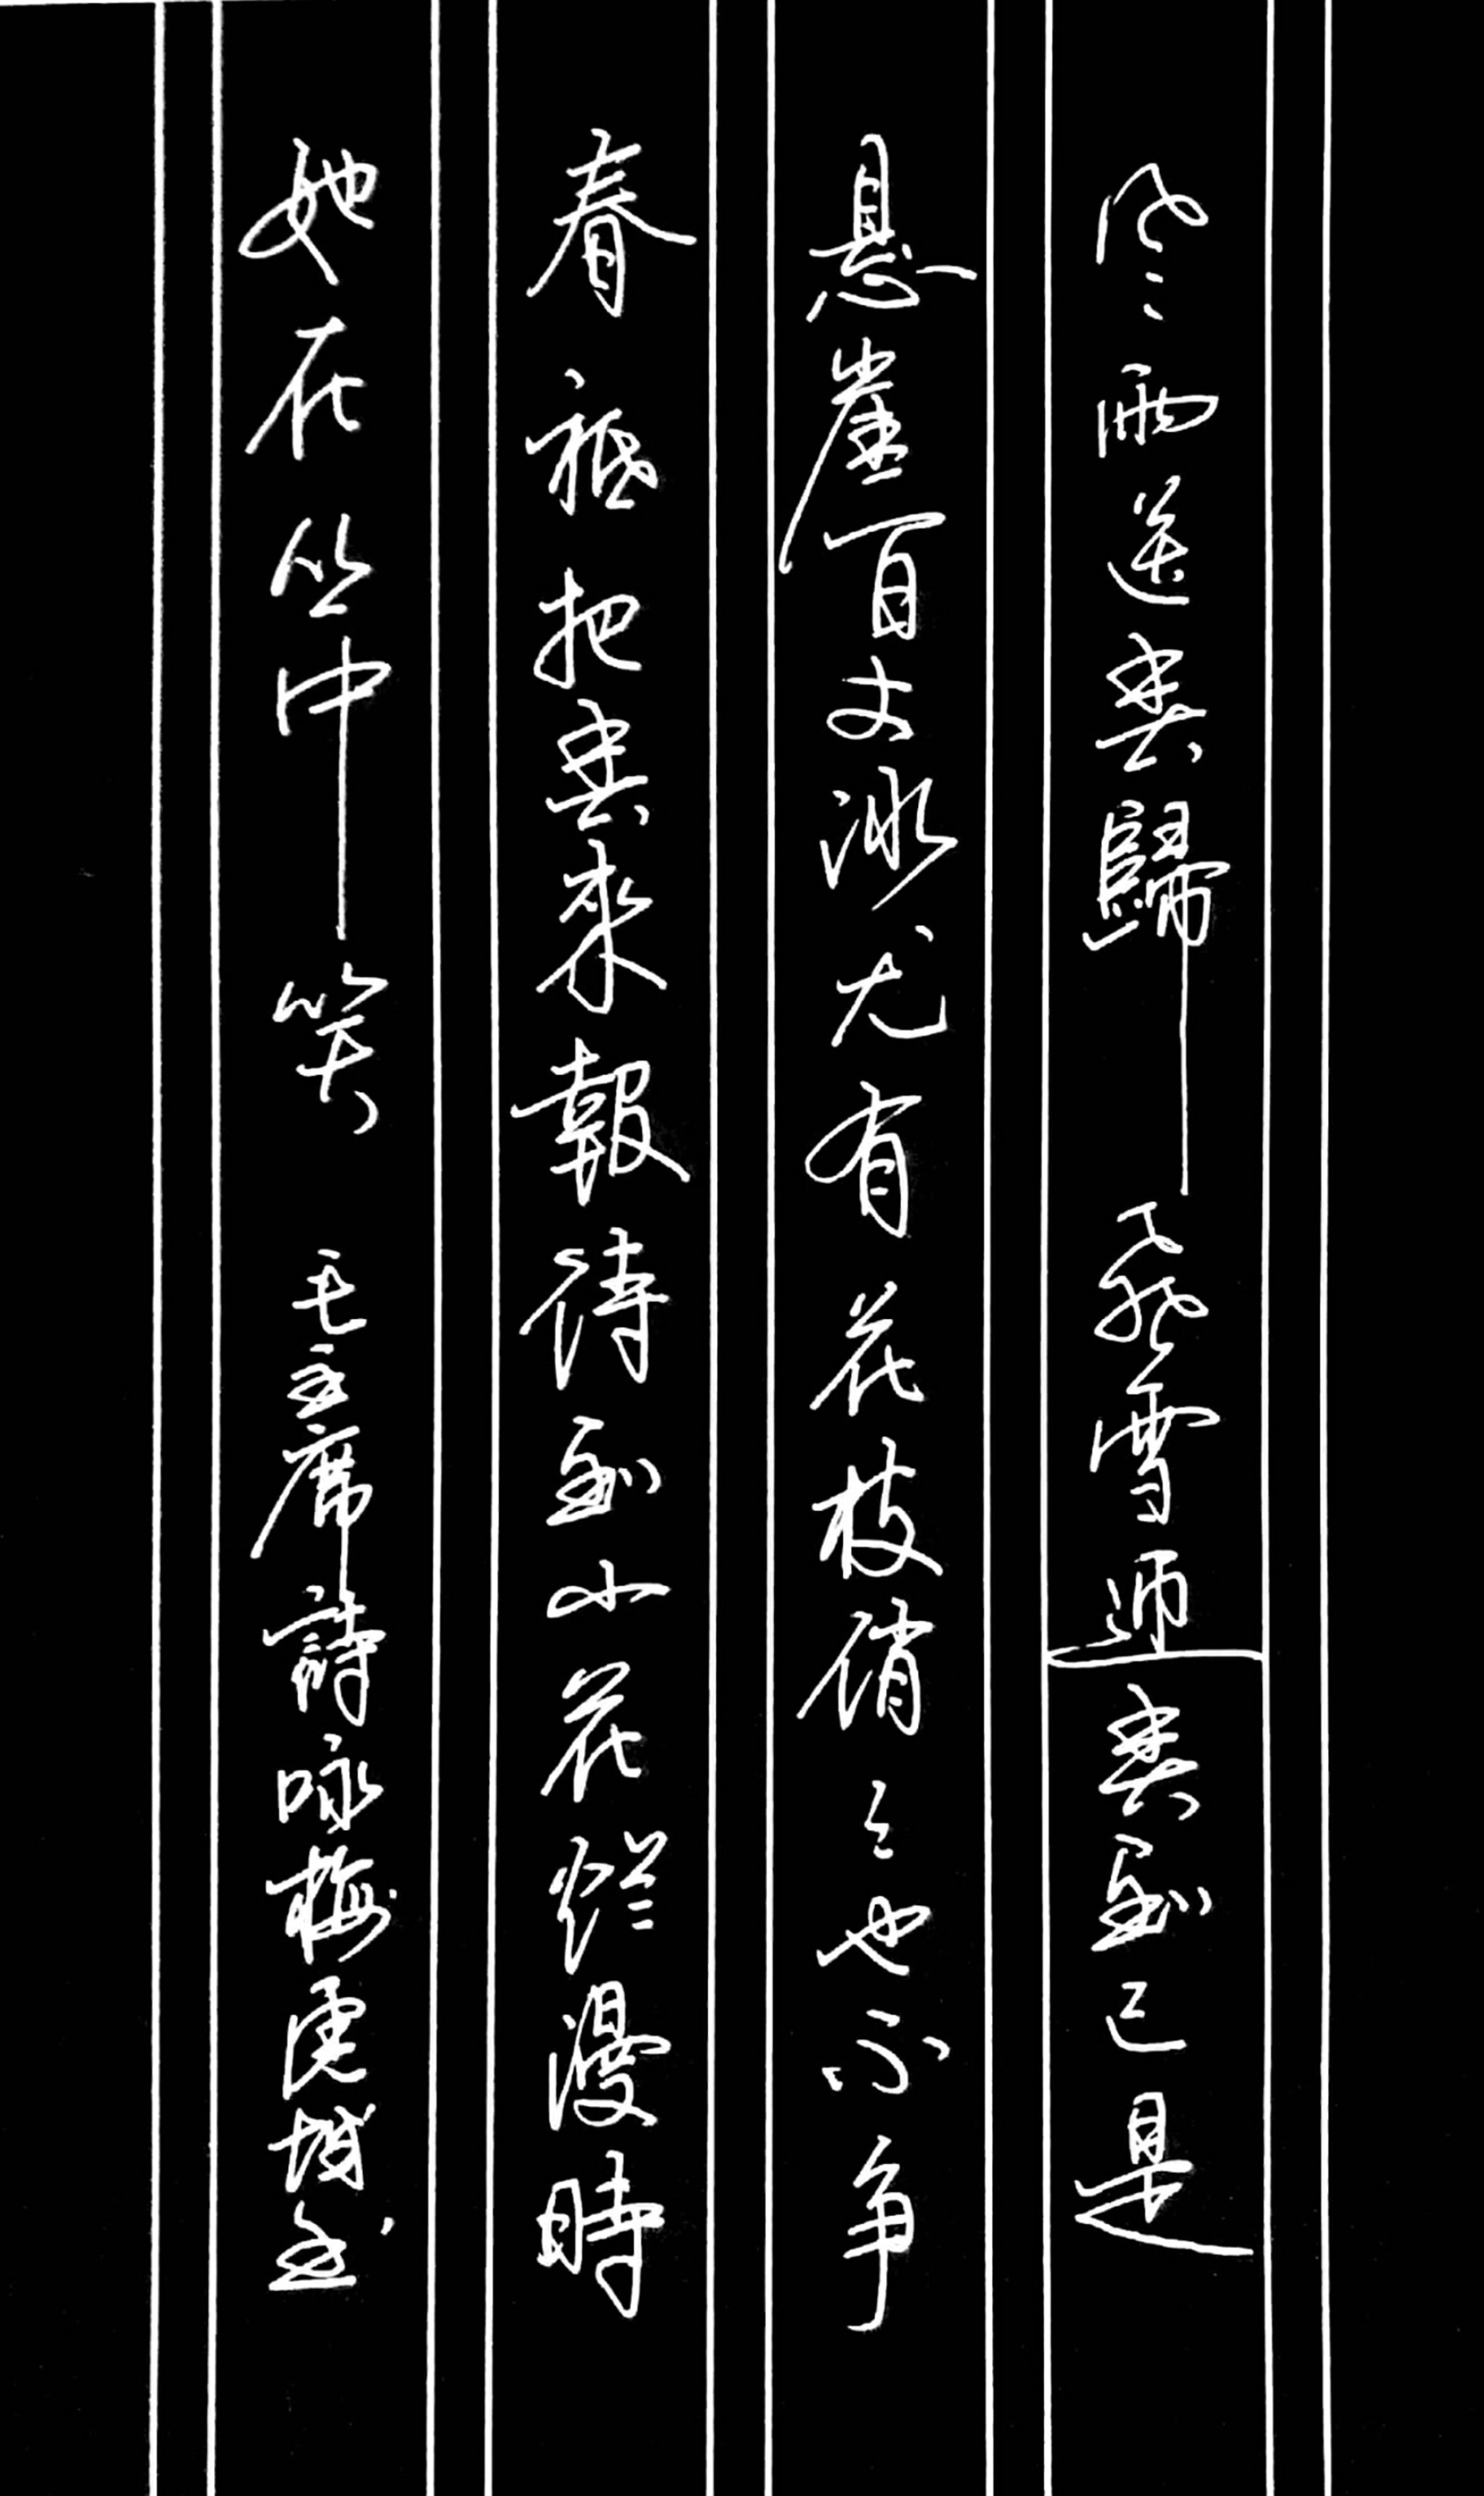 风雨送春歸飛雪迎春到已是
悬崖百丈冰尤有花枝俏々也不争
春祗把春来報待到山花烂漫時
她在丛中笑 毛主席詩咏梅 城书